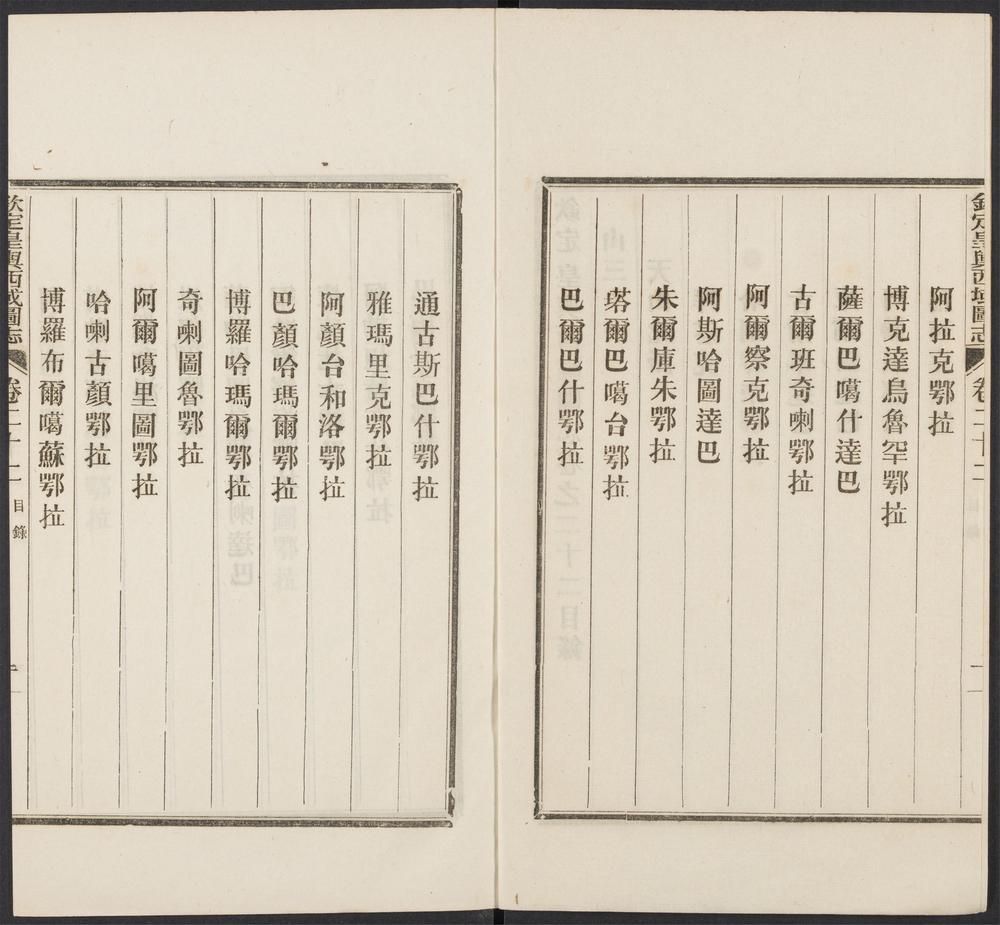 欽定皇輿西域圖志 卷二十二
阿拉克鄂拉
博克達烏魯罕鄂拉
薩爾巴噶什達巴
古爾班奇喇鄂拉
阿爾察克鄂拉
阿斯哈圖達巴
朱爾庫朱鄂拉
塔爾巴噶台鄂拉
巴爾巴什鄂拉
通古斯巴什鄂拉
雅瑪里克鄂拉
阿顏台和洛鄂拉
巴顏哈瑪爾鄂拉
博羅哈瑪爾鄂拉
奇喇圖魯鄂拉
阿爾噶里圖鄂拉
哈喇古顏鄂拉
博羅布爾噶蘇鄂拉
欽定皇輿西域圖志 卷二十二 目錄